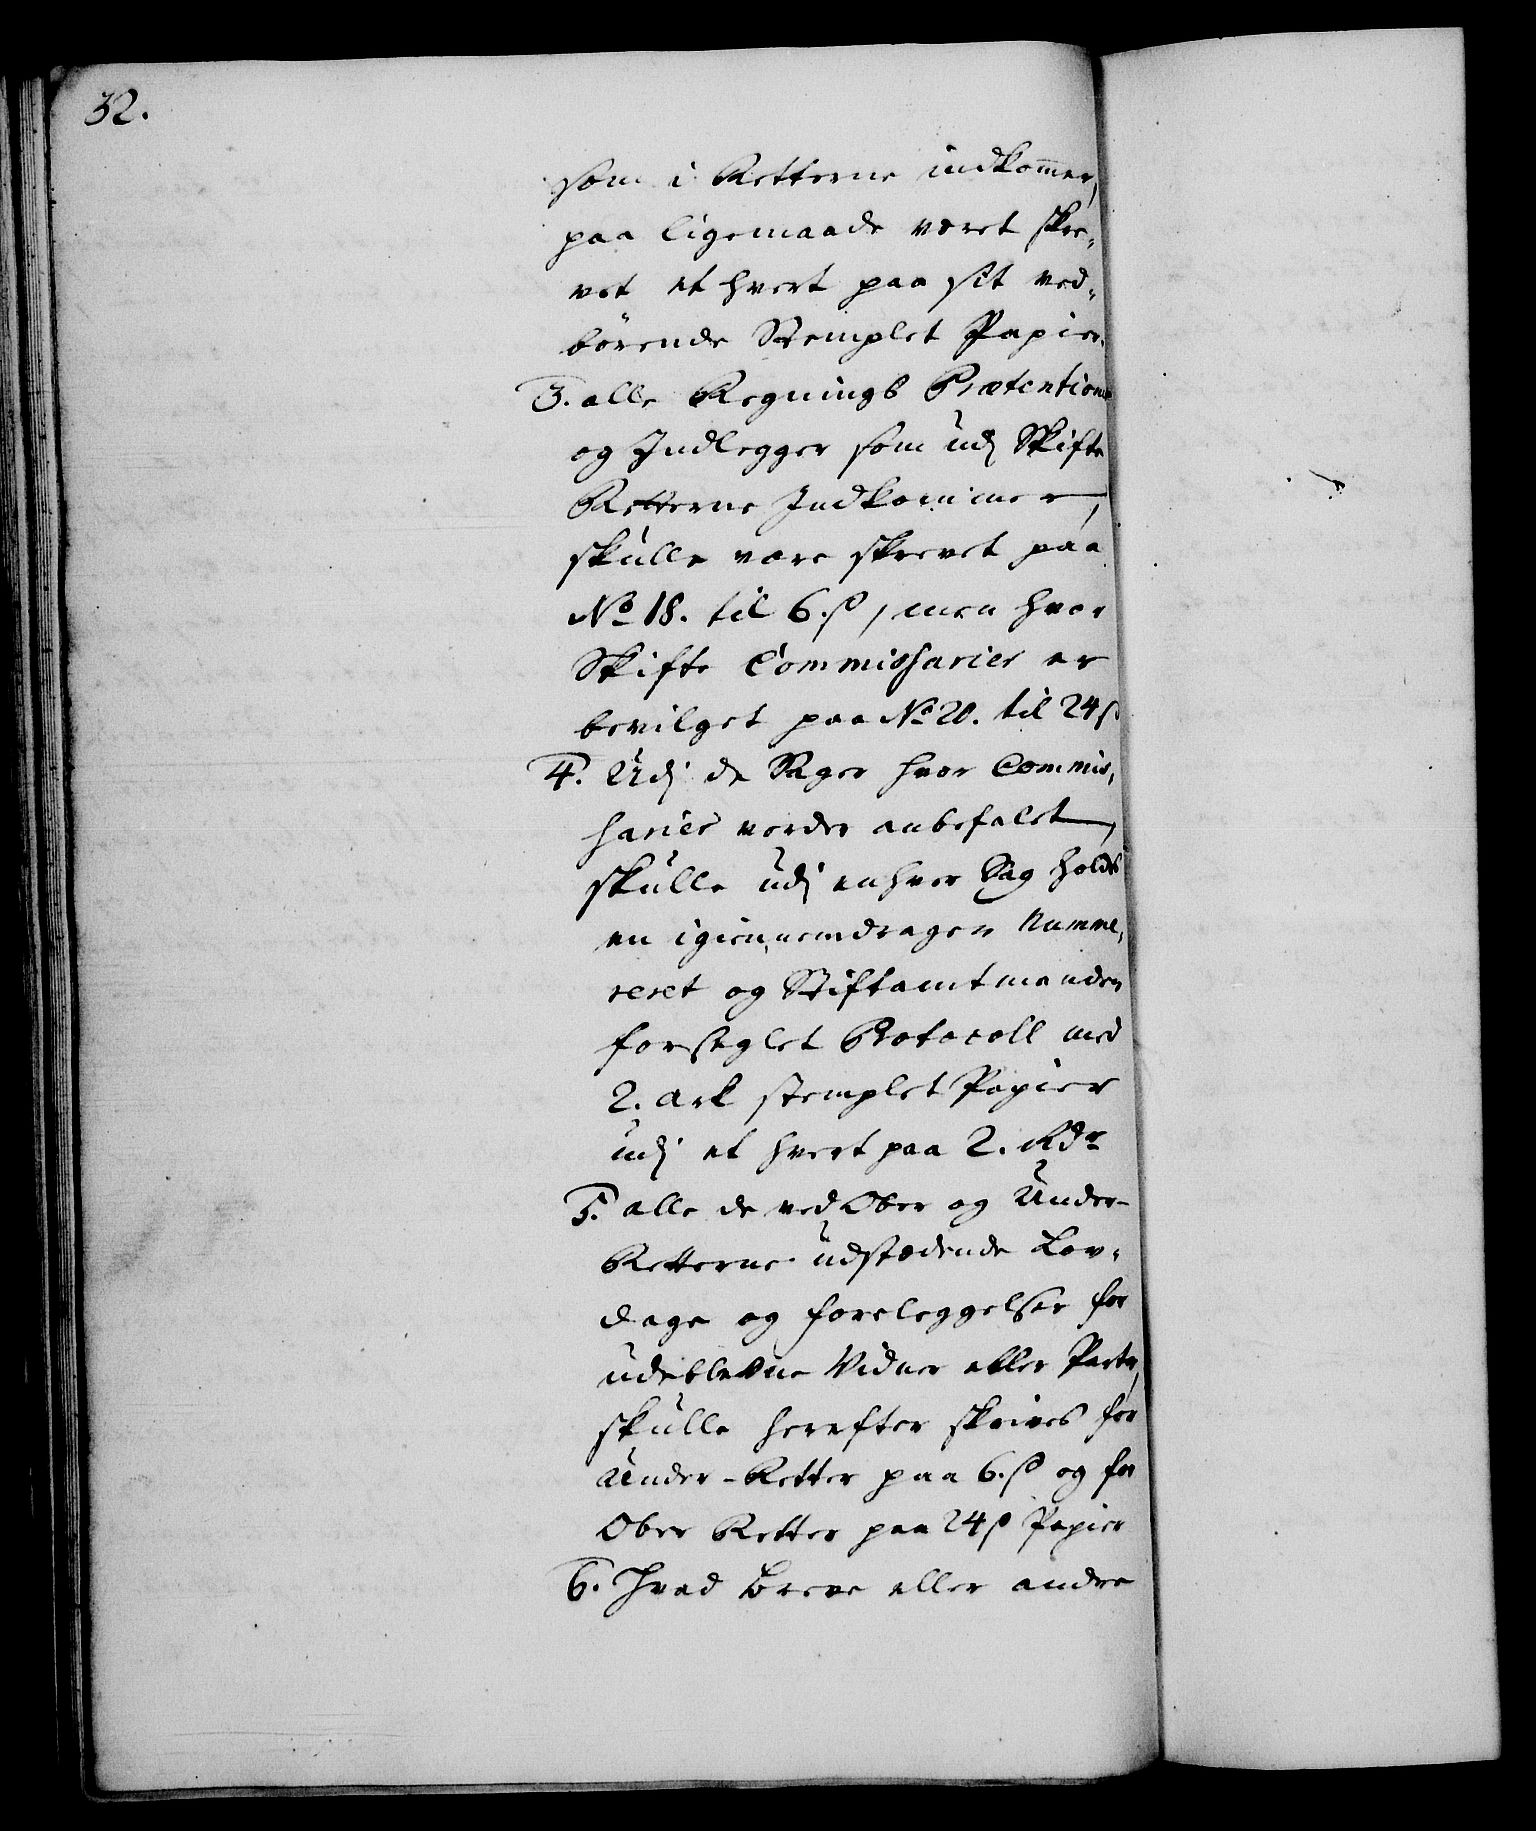 32.
som i Retterne indkom̅er,
paa ligemaade været skre-
vet et hvert paa sit ved-
börende Stemplet Papier.
3. alle Regnings Prætentioner
og Indlegger som udj Skifte
Retterne Indkommer,
skulle være skrevet paa
No 18. til 6.ß, men hvor
Skifte Commissarier er
bevilget paa No 20. til 24 ß
4. Udj de Sager hvor Commis-
sarier vorder anbefalet,
skulle udj enhver Sag holdes
en igiennemdragen Numme-
reret og Stiftamtmanden
forseglet Protocoll med
2. ark stemplet Papier
udj et hvert paa 2. Rdr
5. alle de ved Ober og Under-
Retterne udstædende Lav-
dage og foreleggelser for
udeblevne Vidner eller Parter,
skulle herefter skrives for
Under-Retter paa 6.ß og for
Ober Retter paa 24 ß Papier
6. Hvad Breve eller andre